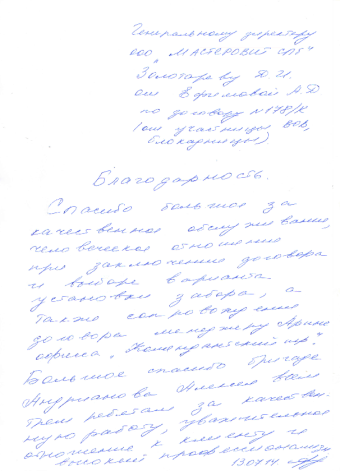 Генеральному директору
ООО "МАСТЕРОВИТ СПб"
Золотареву Д.И.
от Ефимовой А.Д
по договору №178/К
(от участницы ВОВ,
блокадницы)
Благодарность.
Спасибо большое за
качественное обслуживание,
человеческое отношение
при заключение договора
и выборе варианта
установки забора, а
также сопровождение
договора менеджеру Арине
офиса "Комендантский пр."
Большое спасибо бригаде
Андрианова Алексея всем
трем ребятам за качествен-
ную работу, уважительное
отношение к клиенту и
высокий профессионализм
130714